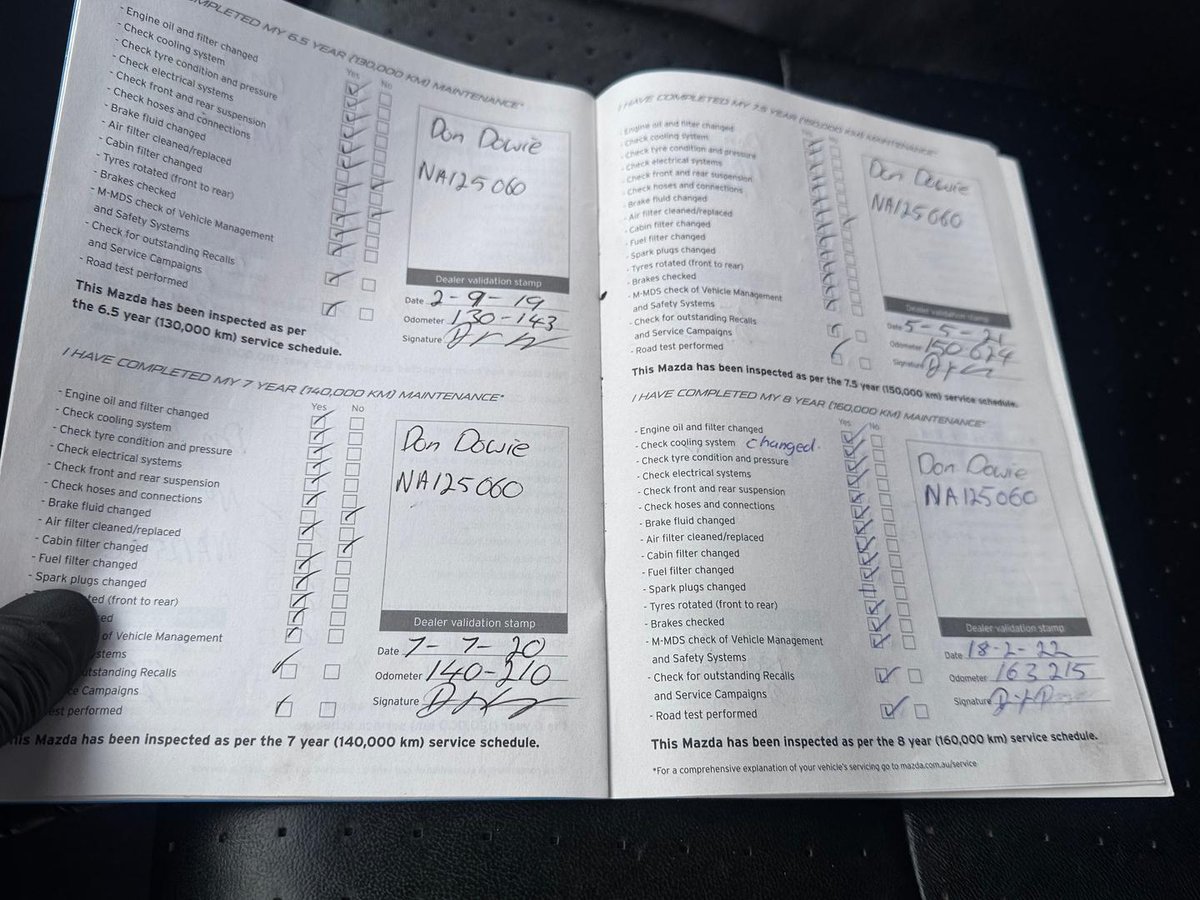 COMPLETED MY 6.5 YEAR (130,000 KM) MAINTENANCE*
Yes No
- Engine oil and filter changed
- Check cooling system
- Check tyre condition and pressure
- Check electrical systems
- Check front and rear suspension
- Check hoses and connections
- Brake fluid changed
- Air filter cleaned/replaced
- Cabin filter changed
- Tyres rotated (front to rear)
- Brakes checked
- M-MDS check of Vehicle Management
and Safety Systems
- Check for outstanding Recalls
and Service Campaigns
- Road test performed
Don Dowie
NA125060
Dealer validation stamp
Date 2-9-19
Odometer 130-143
Signature
This Mazda has been inspected as per
the 6.5 year (130,000 km) service schedule.
I HAVE COMPLETED MY 7 YEAR (140,000 KM) MAINTENANCE*
Yes No
- Engine oil and filter changed
- Check cooling system
- Check tyre condition and pressure
- Check electrical systems
- Check front and rear suspension
- Check hoses and connections
- Brake fluid changed
- Air filter cleaned/replaced
- Cabin filter changed
- Fuel filter changed
- Spark plugs changed
ted (front to rear)
ed
of Vehicle Management
stems
utstanding Recalls
ce Campaigns
est performed
Don Dowie
NA125060
Dealer validation stamp
Date 7-7-20
Odometer 140-210
Signature
This Mazda has been inspected as per the 7 year (140,000 km) service schedule.
I HAVE COMPLETED MY 7.5 YEAR (150,000 KM) MAINTENANCE*
Yes No
- Engine oil and filter changed
- Check cooling system
- Check tyre condition and pressure
- Check electrical systems
- Check front and rear suspension
- Check hoses and connections
- Brake fluid changed
- Air filter cleaned/replaced
- Cabin filter changed
- Fuel filter changed
- Spark plugs changed
- Tyres rotated (front to rear)
- Brakes checked
- M-MDS check of Vehicle Management
and Safety Systems
- Check for outstanding Recalls
and Service Campaigns
- Road test performed
Don Dowie
NA125060
Dealer validation stamp
Date 5-5-21
Odometer 150 624
Signature
This Mazda has been inspected as per the 7.5 year (150,000 km) service schedule.
I HAVE COMPLETED MY 8 YEAR (160,000 KM) MAINTENANCE*
Yes No
- Engine oil and filter changed
- Check cooling system changed.
- Check tyre condition and pressure
- Check electrical systems
- Check front and rear suspension
- Check hoses and connections
- Brake fluid changed
- Air filter cleaned/replaced
- Cabin filter changed
- Fuel filter changed
- Spark plugs changed
- Tyres rotated (front to rear)
- Brakes checked
- M-MDS check of Vehicle Management
and Safety Systems
- Check for outstanding Recalls
and Service Campaigns
- Road test performed
Don Dowie
NA125060
Dealer validation stamp
Date 18-2-22
Odometer 163 215
Signature
This Mazda has been inspected as per the 8 year (160,000 km) service schedule.
*For a comprehensive explanation of your vehicle's servicing go to mazda.com.au/service